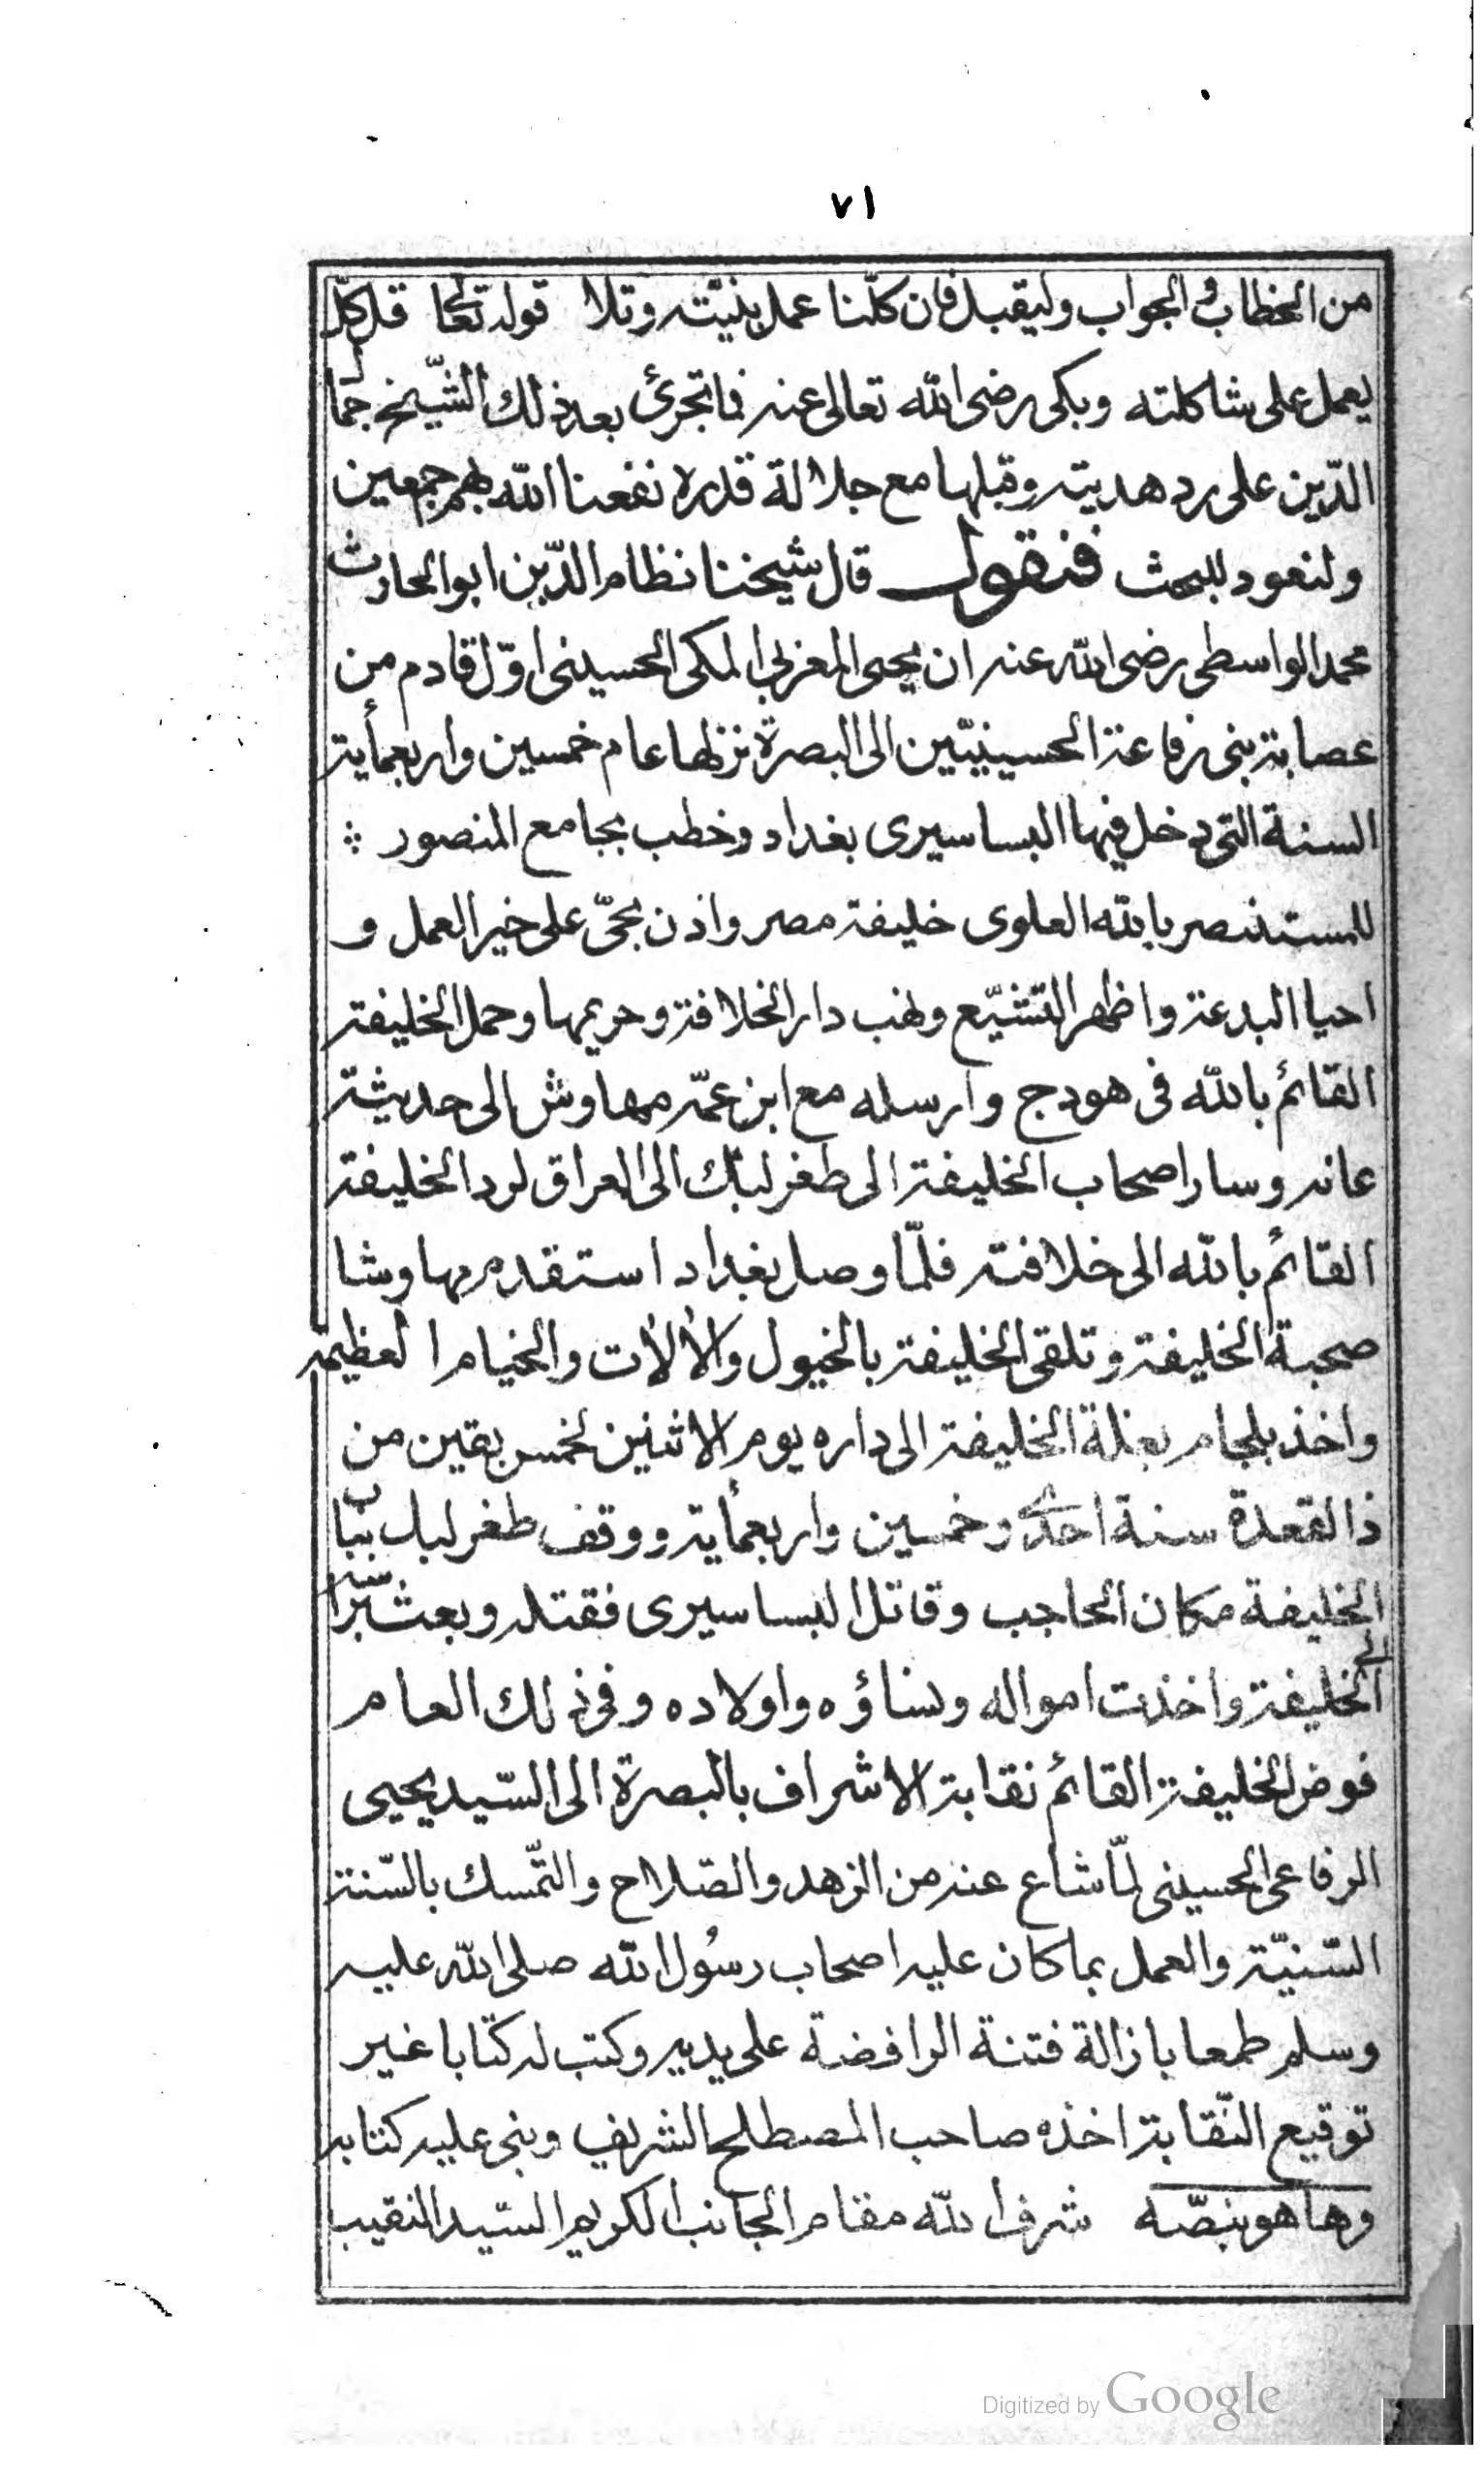 ٧١
من الخطاب والجواب وليقبل فان كلّنا عمل بنيّته وتلا قوله تعالى قل كلّ
يعمل على شاكلته وبكى رضى الله تعالى عنه فما تجرئ بعد ذلك الشّيخ جمال
الدّين على رد هديته وقبلها مع جلالة قدره نفعنا الله بهم جمعين
ولنعود للبحث فنقول قال شيخنا نظام الدّين ابو الحارث
محمد الواسطى رضى الله عنه ان يحيى المغربى المكى الحسينى اوّل قادم من
عصابة بنى رفاعة الحسينيّين الى البصرة نزلها عام خمسين واربعمأية
السنة التى دخل فيها البساسيرى بغداد وخطب بجامع المنصور
للمستنصر بالله العلوى خليفة مصر واذن بحىّ على خير العمل و
احيا البدعة واظهر التشيّع ونهب دار الخلافة وحريمها وحمل الخليفة
القائم بالله فى هودج وارسله مع ابن عمّه مهاوش الى حديثة
عانه وسار اصحاب الخليفة الى طغرلبك الى العراق لرد الخليفة
القائم بالله الى خلافته فلمّا وصل بغداد استقدم مهاوشا
صحبة الخليفة وتلقى الخليفة بالخيول والألات والخيام العظيمة
واخذ بلجام بغلة الخليفة الى داره يوم الاثنين لخمس بقين من
ذالقعدة سنة احدى وخمسين واربعمأية ووقف طغرلبك بباب
الخليفة مكان الحاجب وقاتل البساسيرى فقتله وبعث برأسه
الى الخليفة واخذت امواله ونساؤه واولاده وفى ذلك العام
فوض الخليفة القائم نقابة الاشراف بالبصرة الى السّيد يحيى
الرفاعى الحسينى لمّا شاع عنه من الزهد والصّلاح والتّمسك بالسّنة
السّنيّة والعمل بما كان عليه اصحاب رسُول الله صلى الله عليه
وسلم طمعا بازالة فتنة الرافضة على يديه وكتب له كتابا غير
توقيع النّقابة اخذه صاحب المصطلح الشريف وبنى عليه كتابه
وها هو بنصّه شرف الله مقام الجانب الكريم السّيد النقيب
Digitized by Google